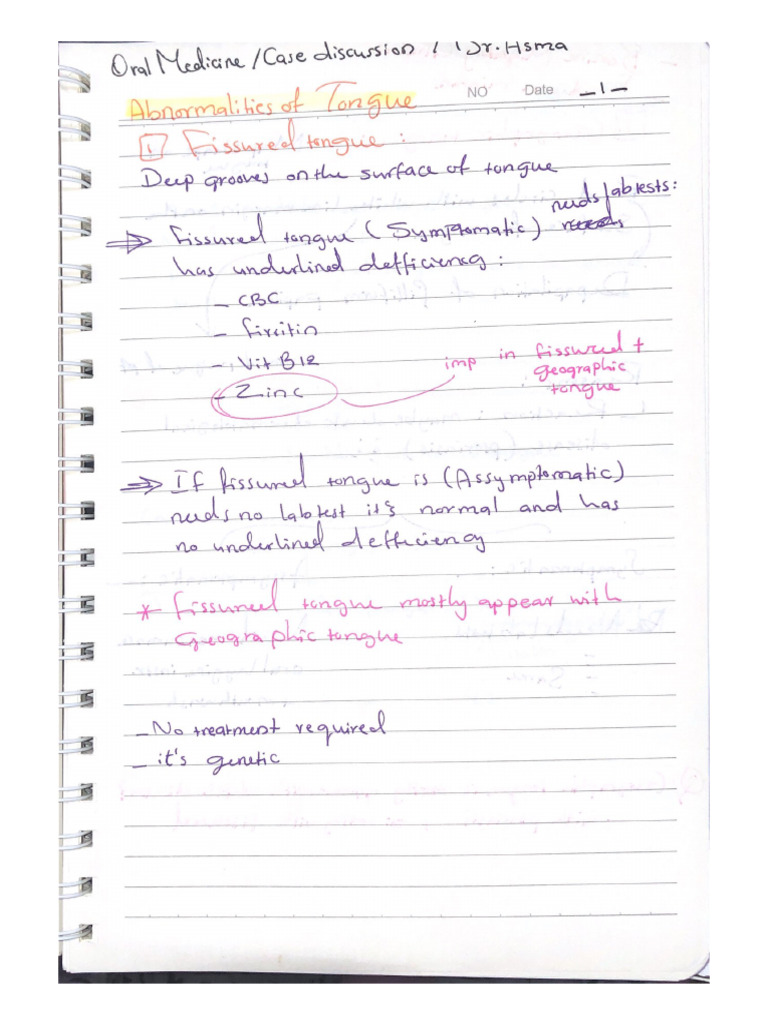 Oral Medicine / Case discussion / Dr. Asma
Abnormalities of Tongue NO Date -1-
1 Fissured tongue :
Deep grooves on the surface of tongue
⇒ Fissured tongue (Symptomatic) needs lab tests:
has underlined defficiency :
- CBC
- firritin
- Vit B12
- Zinc
imp in fissured +
geographic
tongue
⇒ If fissured tongue is (Assymptomatic)
needs no lab test it's normal and has
no underlined defficiency
* fissured tongue mostly appear with
Geographic tongue
- No treatment required
- it's genetic